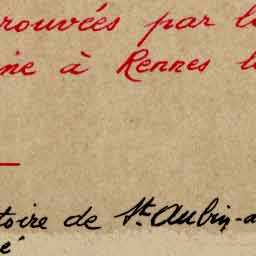 rouvées par l
ine à Rennes l
toire de St Aubin-d
é